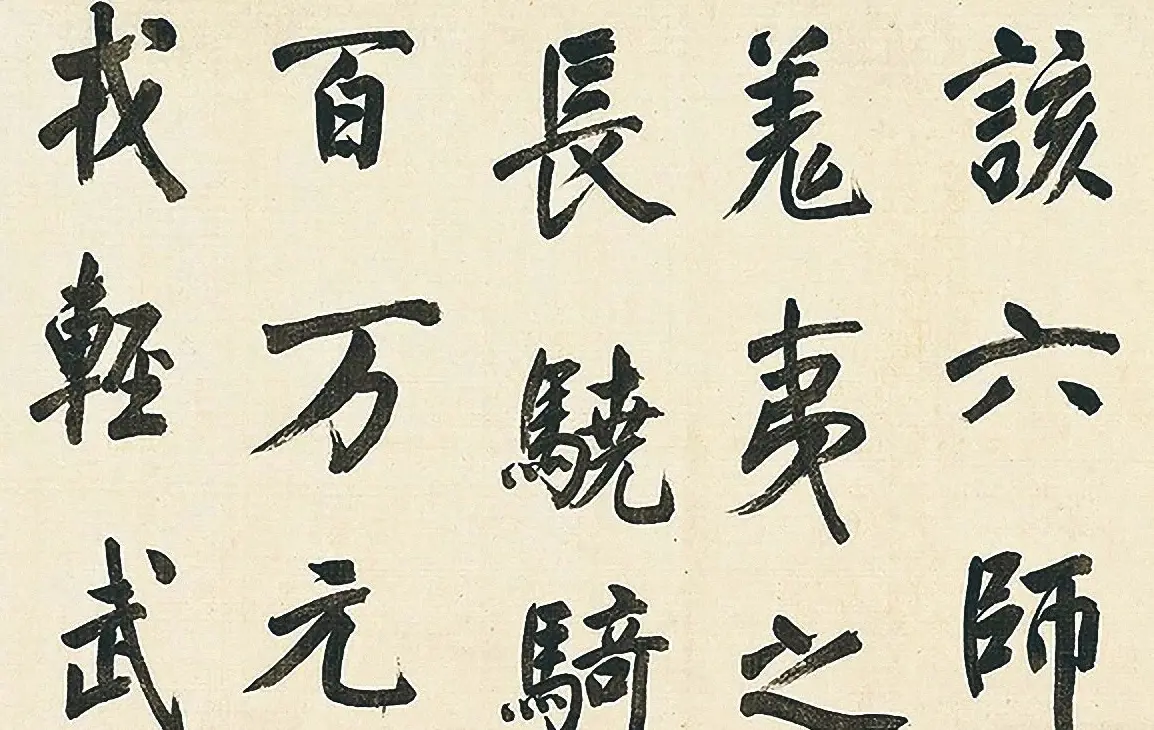 該六師
羌夷之
長驍騎
百万元
戎輕武